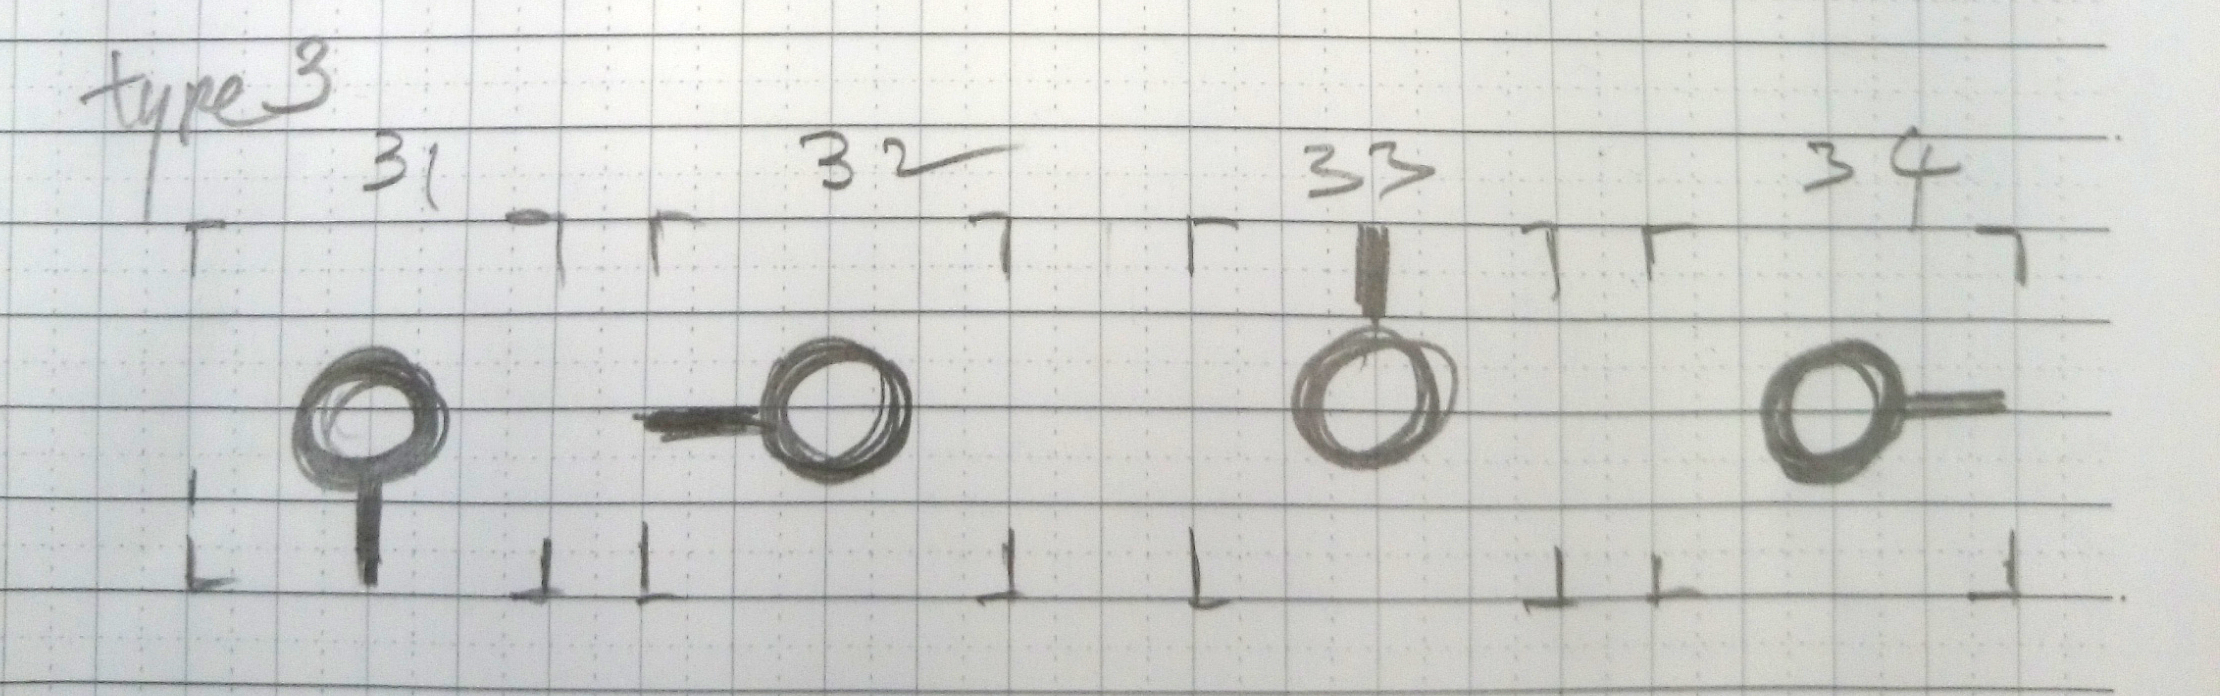 type 3
31 32 33 34